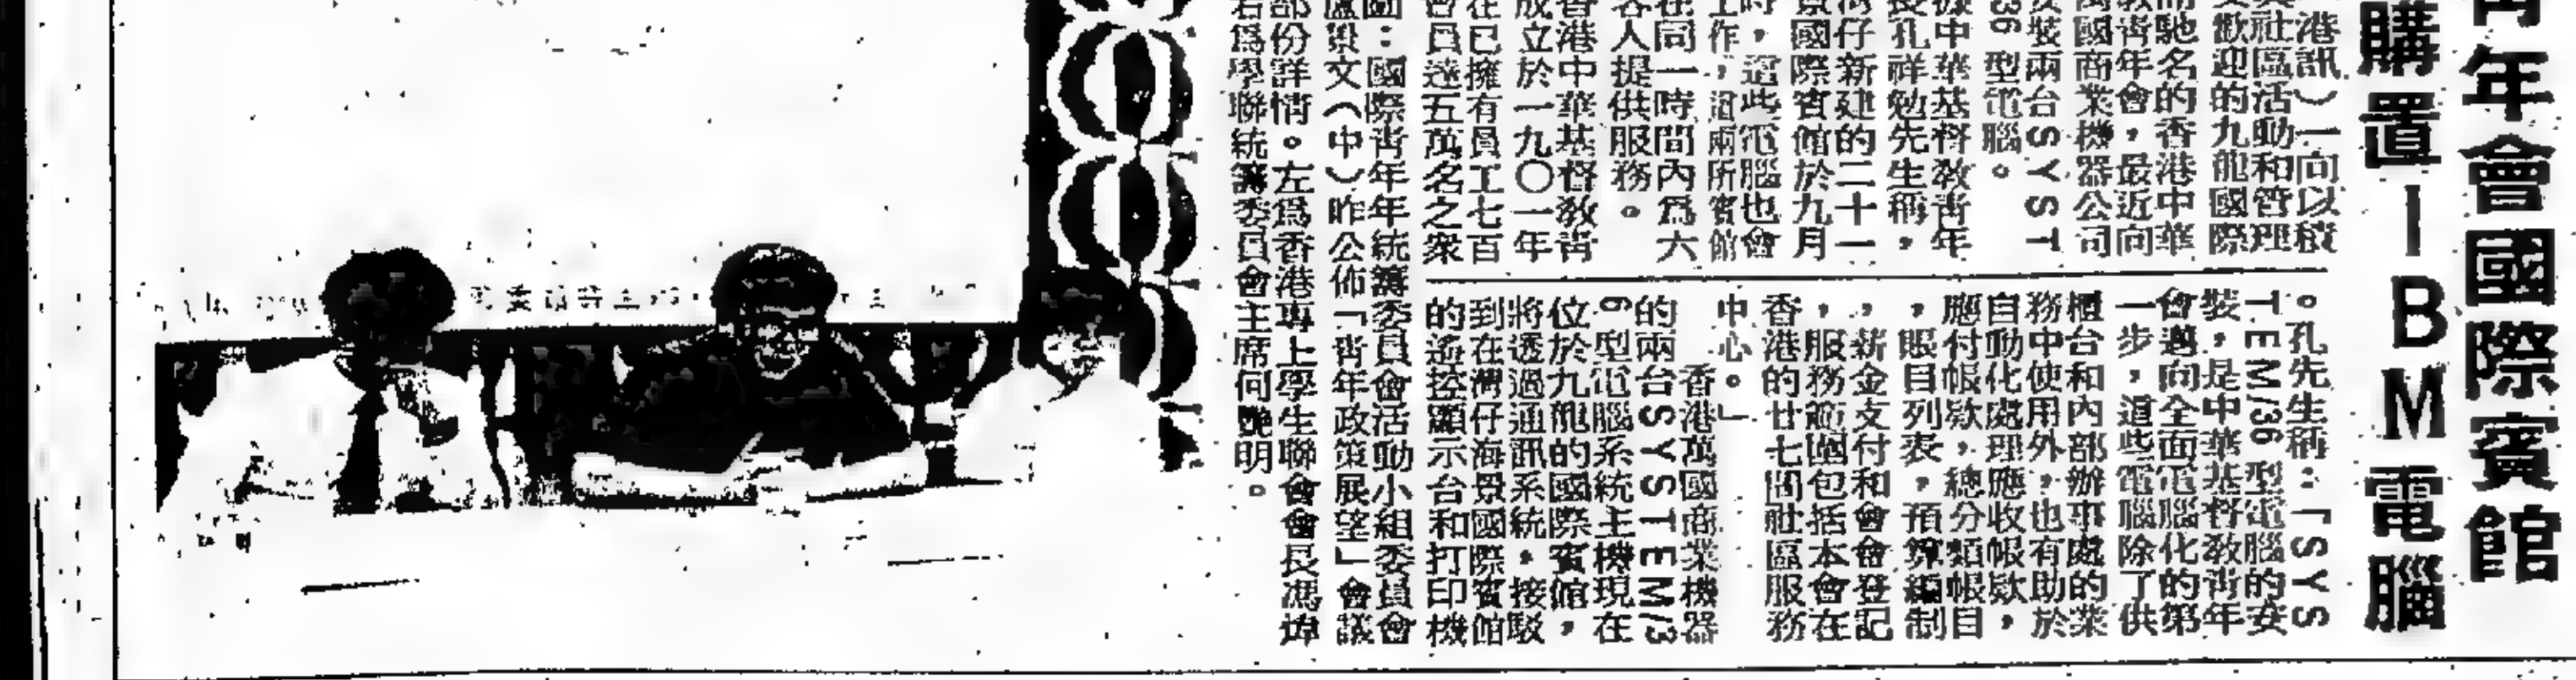 青年會國際賓館
購置IBM電腦
港訊)一向以積
社區活動和管理
歡迎的九龍國際
而馳名的香港中華
教青年會,最近向
萬國商業機器公司
安裝兩台SYST
36型電腦。
據中華基督教青年
長孔祥勉先生稱,
灣仔新建的二十一
景國際賓館於九月
時,這些電腦也會
工作,這兩所賓館
在同一時間內為六
客人提供服務。
香港中華基督教青
成立於一九〇一年
在已擁有員工七百
會員達五萬名之衆
。孔先生稱:「SYS
TEM/36型電腦的安
裝,是中華基督教青年
會邁向全面電腦化的第
一步,這些電腦除了供
櫃台和內部辦事處的業
務中使用外,也有助於
自動化處理應收帳欵,
應付帳欵,總分類帳目
,賬目列表,預算編制
,薪金支付和會會登記
,服務範圍包括本會在
香港的廿七間社區服務
中心。」
香港萬國商業機器
的兩台SYSTEM/3
6型電腦系統主機現在
位於九龍的國際賓館,
將透過通訊系統,接駁
到在灣仔海景國際賓館
的遙控顯示台和打印機
圖:國際青年年統籌委員會活動小組委員會
文(中)昨公佈「青年政策展望」會議
部份詳情。左為香港專上學生聯會會長馮煒
右為學聯統籌委員會主席何艷明。